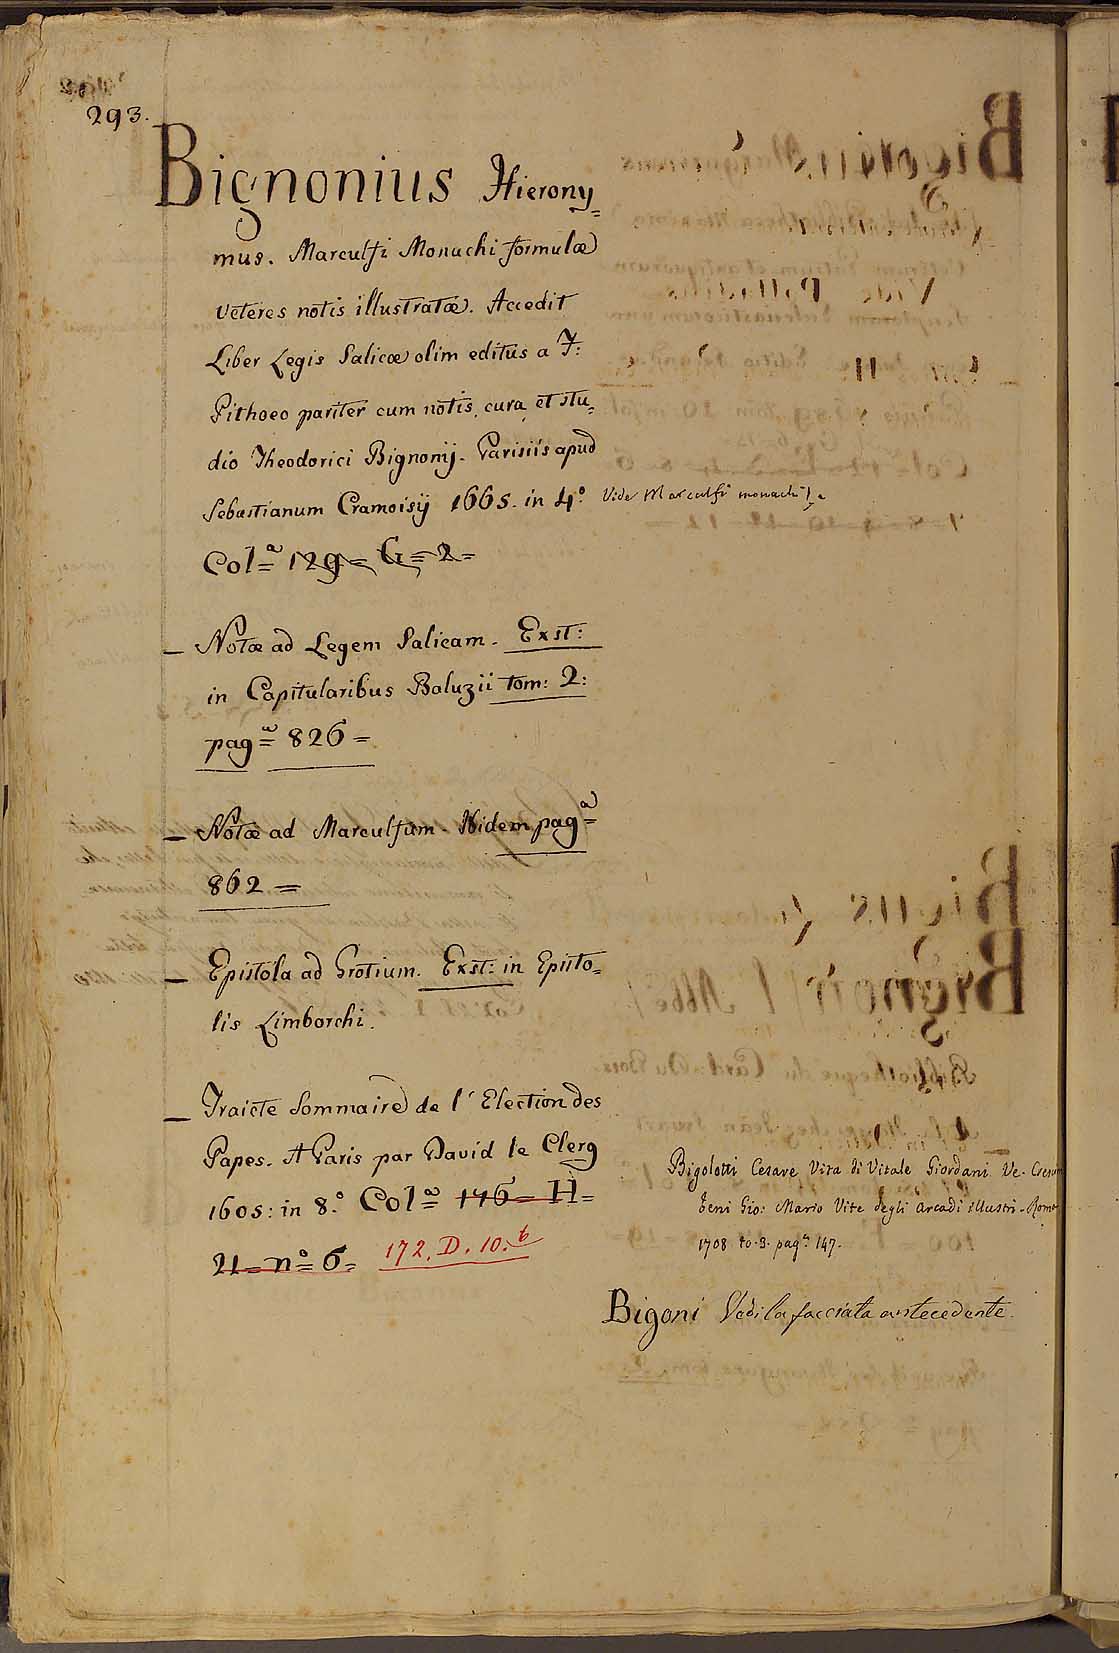 293.
Bignonius Hierony=
mus. Marculfi Monachi formulæ
veteres notis illustratæ. Accedit
Liber Legis Salicæ olim editus a F:
Pithoeo pariter cum notis, cura et stu=
dio Theodorici Bignonij. Parisiis apud
Sebastianum Cramoisij 1665. in 4.º Vide Marculfi monachi
Col=ª 129= G=2=
— Notæ ad Legem Salicam. Exst:
in Capitularibus Baluzii tom: 2:
pag=ª 826=
— Notæ ad Marculfum. Ibidem pag=ª
862=
— Epistola ad Grotium. Exst: in Episto=
lis Limborchi.
— Traicte Sommaire de l'Election des
Papes. A Paris par David le Clerg
1605: in 8.º Col=ª 146= H=
21= nº= 6= 172. D. 10. b
Bigolotti Cesare Vita di Vitale Giordani Ve. Crescim
beni Gio: Mario Vite degli Arcadi illustri. Roma
1708 to. 3. pag.ª 147.
Bigoni Vedi la facciata antecedente.